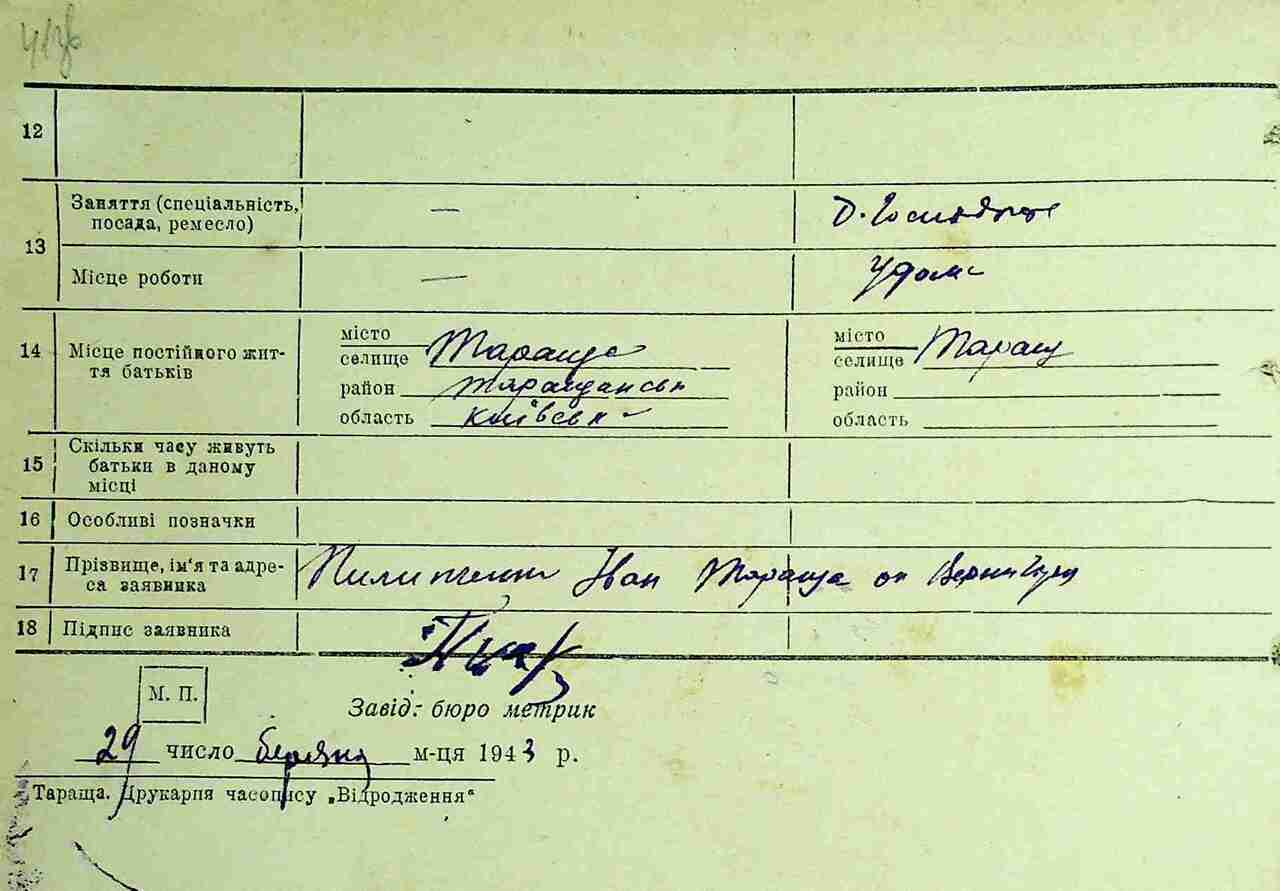 12
13 Заняття (спеціальність, посада, ремесло) — Д. Господарює
Місце роботи — У дома
14 Місце постійного життя батьків
місто Тараща місто Таращ
селище селище
район Таращанськ район
область Київськ область
15 Скільки часу живуть батьки в даному місці
16 Особливі позначки
17 Прізвище, ім'я та адреса заявника Пилипченко Іван Тараща
18 Підпис заявника
М. П.
Завід. бюро метрик
29 число березня м-ця 1943 р.
Тараща. Друкарня часопису „Відродження“